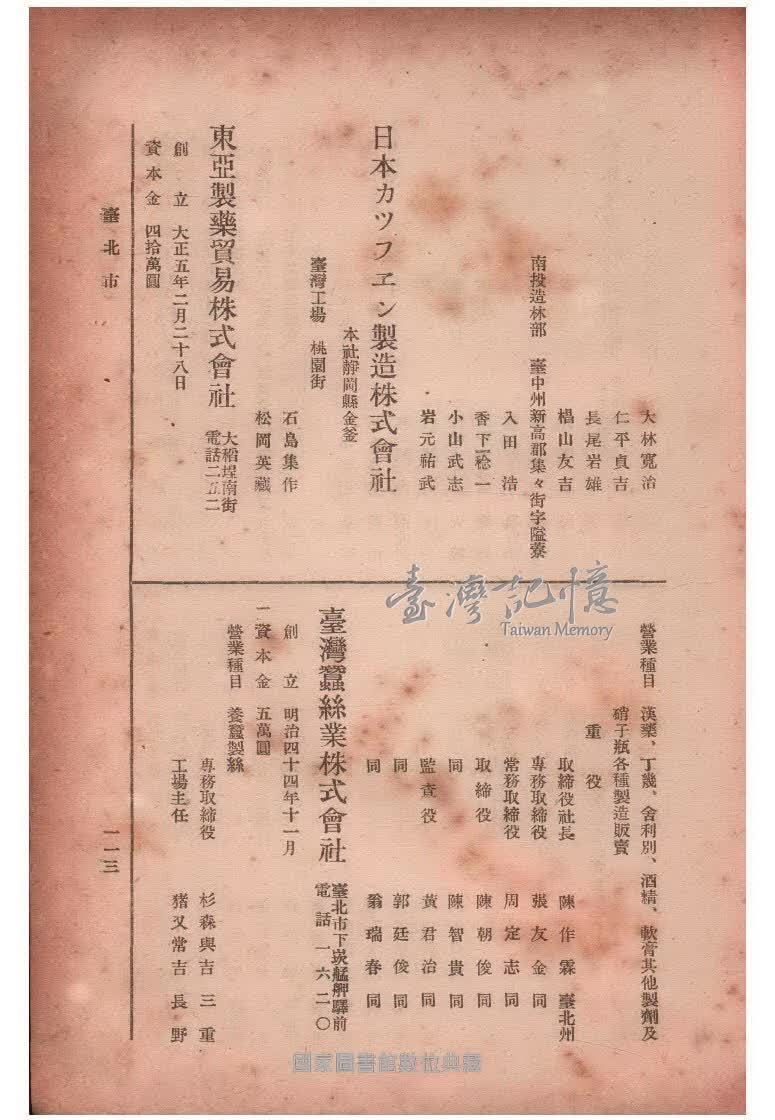 大林寬治
仁平貞吉
長尾岩雄
椙山友吉
南投造林部 臺中州新高郡集々街字隘藔
入田浩
香下稔一
小山武志
岩元祐武
日本カツフエン製造株式會社
本社靜岡縣金釜
臺灣工場 桃園街
石島集作
松岡英藏
東亞製藥貿易株式會社
大稻埕南街
電話二五二
創立 大正五年二月二十八日
資本金 四拾萬圓
營業種目 漢藥、丁幾、舍利別、酒精、軟膏其他製劑及
硝子瓶各種製造販賣
重役
取締役社長 陳作霖 臺北州
專務取締役 張友金 同
常務取締役 周定志 同
取締役 陳朝俊 同
同 陳智貴 同
監査役 黃君治 同
同 郭廷俊 同
同 翁瑞春 同
臺灣蠶絲業株式會社
臺北市下崁艋舺驛前
電話一六二〇
創立 明治四十四年十一月
資本金 五萬圓
營業種目 養蠶製絲
專務取締役 杉森與吉 三重
工場主任 猪又常吉 長野
臺北市
一一三
臺灣記憶
Taiwan Memory
國家圖書館數位典藏